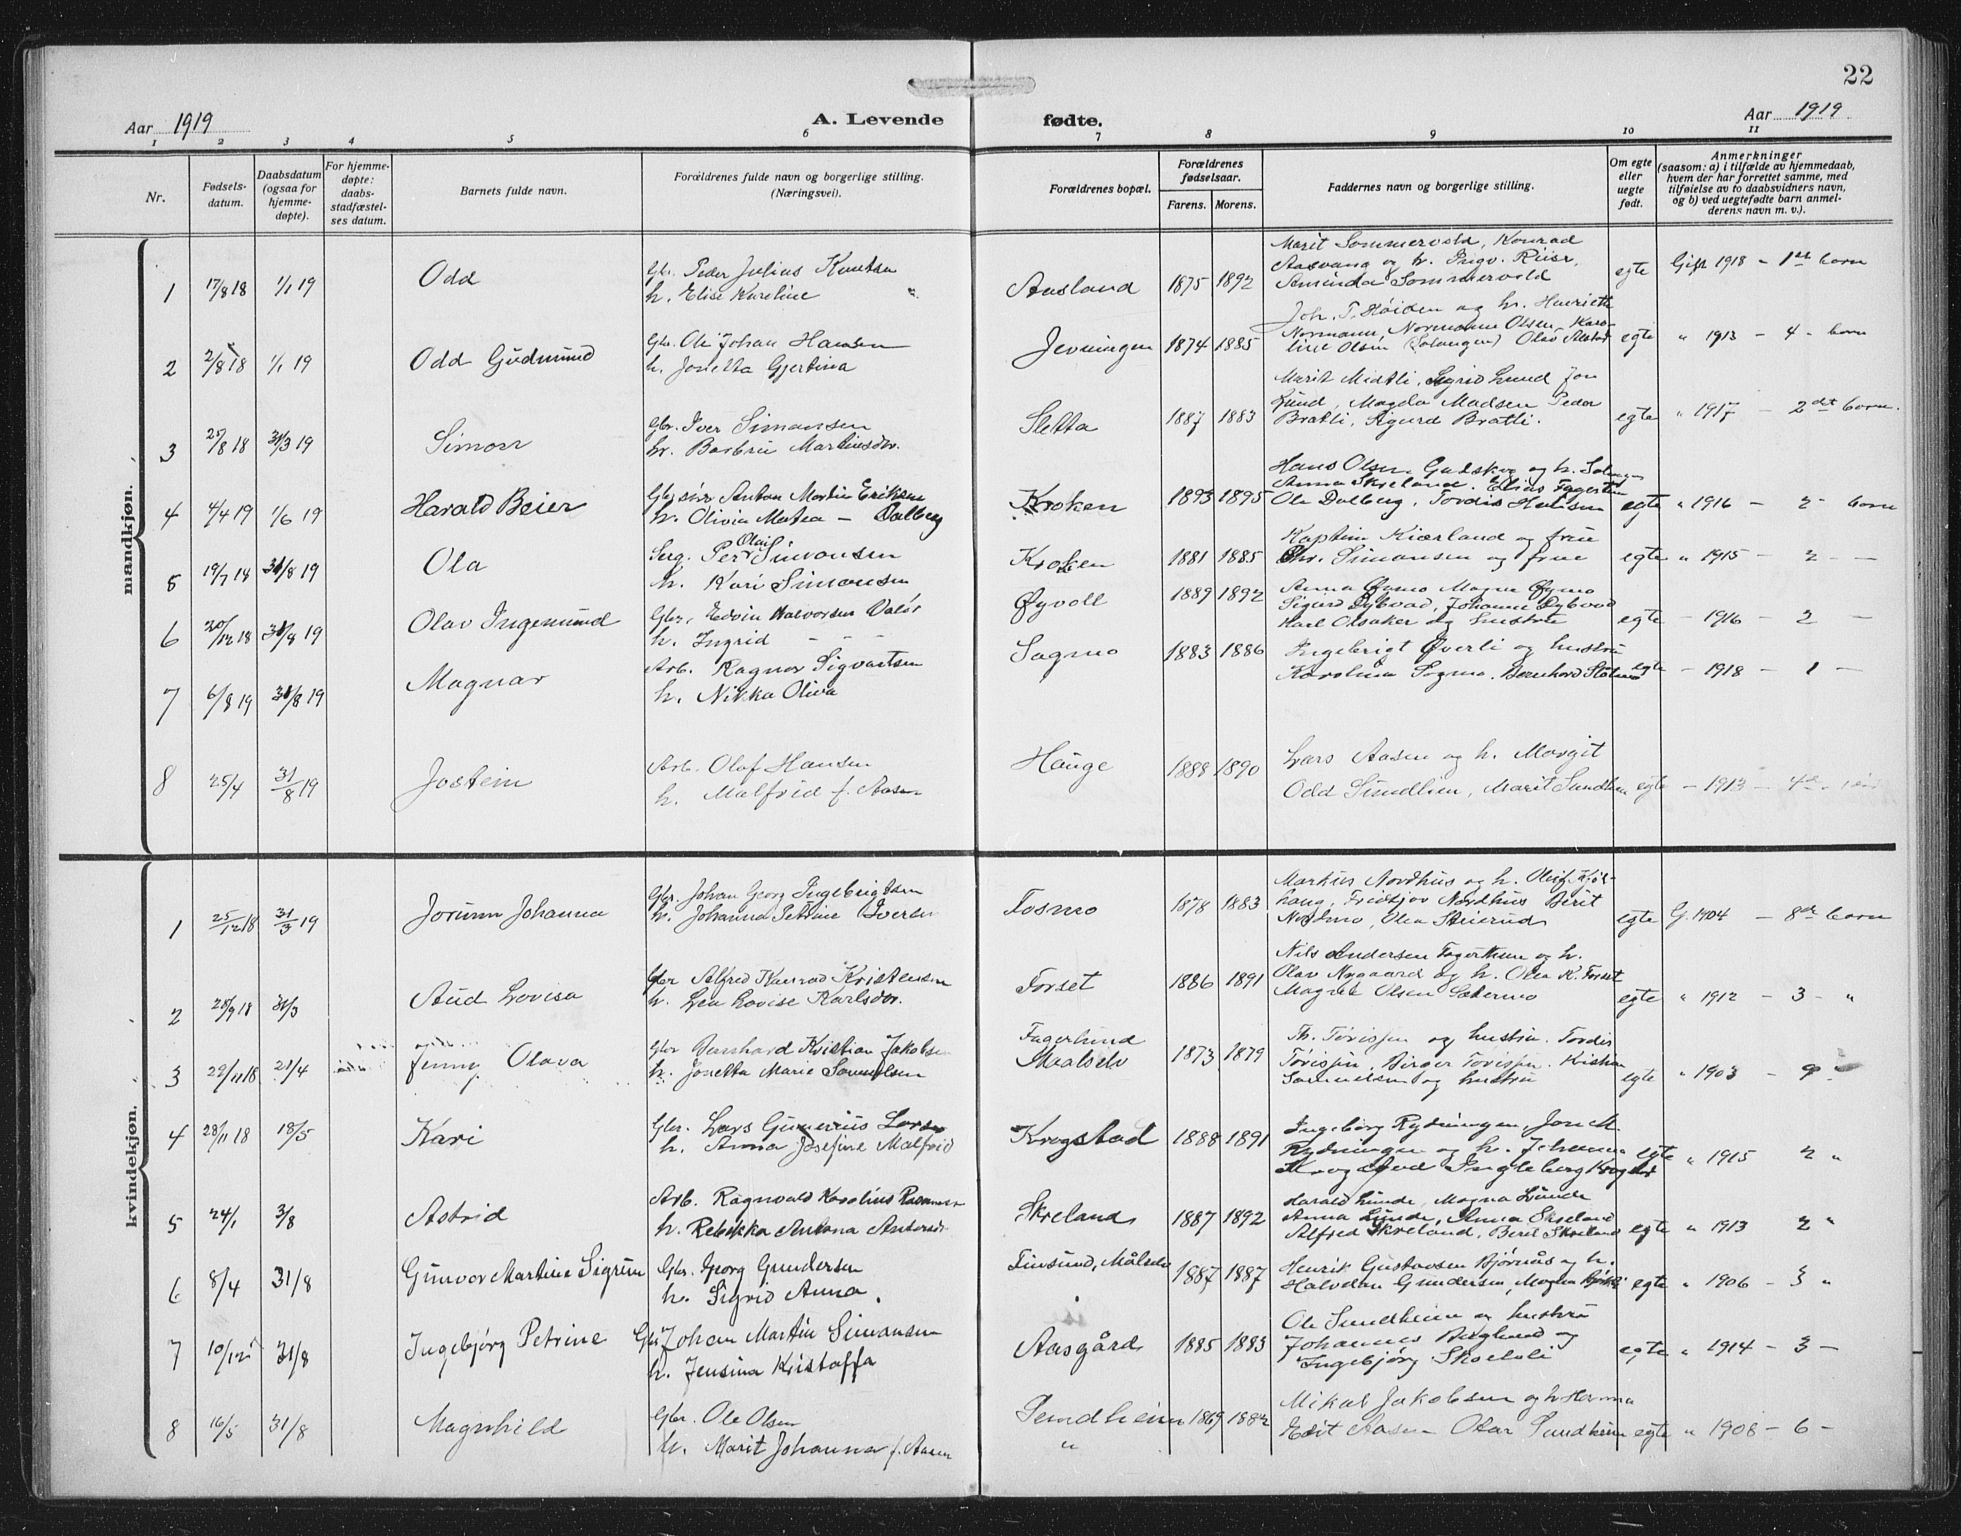 22
Aar 1919 A. Levende fødte. Aar 1919
1 2 3 4 5 6 7 8 9 10 11
Nr.
Fødsels-
datum.
Daabsdatum
(ogsaa for
hjemme-
døpte).
For hjemme-
døpte:
daabs-
stadfæstel-
ses datum.
Barnets fulde navn.
Forældrenes fulde navn og borgerlige stilling.
(Næringsvei).
Forældrenes bopæl.
Forældrenes
fødselsaar.
Farens. Morens.
Faddernes navn og borgerlige stilling.
Om egte
eller
uegte
født.
Anmerkninger
(saasom: a) i tilfælde av hjemmedaab,
hvem der har forrettet samme, med
tilføielse av to daabsvidners navn,
og b) ved uegtefødte barn anmel-
derens navn m. v.).
mandkjøn.
1 17/8 18 1/1 19 Odd
Gbr. Peder Julius Knutsen
h. Elise Kareline "
Aasland 1875 1892
Marit Sommervold, Konrad
Aasvang og h. Ingv. Riise,
Aminda Sommervold
egte Gift 1918 - 1ste barn
2 2/8 18 1/1 19 Odd Gudmund
Gbr. Ole Johan Hansen
h. Jonetta Gjertina
Jevningen 1874 1885
Joh. T. Høiden og h. Henriette
Normann, Normanne Olsen, Karo-
line Olsen (Salangen) Olav
egte " 1913 - 4 - barn
3 25/8 18 31/3 19 Simon
Gbr. Iver Simonsen
h. Barbru Martinsdtr.
Sletta 1887 1883
Marit Midtli, Sigrid Lund Jon
Lund, Magda Madsen Peder
Bratli, Sigurd Bratli.
egte " 1917 - 2det barn.
4 4/4 19 1/6 19 Harald Beier
Anton Martin Eriksen
h. Olivia Matea - Dalberg
Kroken 1893 1895
Hans Olsen og h.
Anna Skreland. Elias
Ole Dalberg, Tordis Hansen
egte " 1916 - 2 - barn
5 19/7 18 31/8 19 Ola
Serg. Per Olai Simonsen
h. Kari Simonsen
Kroken 1881 1885
Kaptein Kiærland og frue
Chr. Simonsen og frue
egte " 1915 - 2 - -
6 20/12 18 31/8 19 Olav Ingemund
Gbr. Edvin Halvorsen
h. Ingrid - - -
Øyvoll 1889 1892
Anna Øymo Magne Øymo
Sigurd Dybvad, Johanne Dybvad
Karl Olsaker og hustru
egte - 1916 - 2 -
7 6/8 19 31/8 19 Magnar
Arb. Ragnar Sigvartsen
h. Nikka Oliva
Sagmo 1883 1886
Ingebrigt Øverli og hustru
Karolina Sagmo. Bernhard
egte - 1918 - 1 -
8 25/4 31/8 19 Jostein
Arb. Olaf Hansen
h. Malfrid f. Aasen
Hauge 1888 1890
Lars Aasen og h. Margit
Odd Sundlien, Marit Sundlien
egte - 1913 - 4de
kvindekjøn.
1 25/12 18 31/3 19 Jorunn Johanna
Gbr. Johan Georg Ingebrigtsen
h. Johanna Petrine Iversen
Fosmo 1878 1883
Markus Nordhus og h. Oluf
haug, Fridtjov Nordhus Berit
Nordmo, Olea
egte G. 1904 - 8de barn
2 28/9 18 31/3 Aud Lovisa
Gbr Alfred Konrad Kristensen
h. Lea Lovise Karlsdtr.
Forset 1886 1891
Nils Andersen Fagerthun og h.
Olav Nygaard og h. Olea K. Forset
Magrete Olsen Sætermo
egte " 1912 - 3 - "
3 29/11 18 21/4 Jenny Olava
Gbr Bernhard Kristian Jakobsen
h. Jonetta Marie Samuelsen
Fagerlund
Maalselv 1873 1879
Th. og hustru. Tordis
Birger Kristian
Samuelsen og hustru
egte " 1903 - 9
4 28/11 18 18/5 Kari
Gbr. Lars Gunerius Larsen
h. Anna Josefine Malfrid
Krogstad 1888 1891
Ingebørg Rydningen, Jon M.
Rydningen og h. Johanna
Krogstad Ingeberg Krogstad
egte " 1915 2 "
5 24/1 3/8 Astrid
Arb. Ragnvald Karolius Rasmussen
h. Rebekka Antona Andersdtr
Skreland 1887 1892
Harald Lunde, Magna Lunde
Anna Lunde, Anna Skreland
Alfred Skreland, Berit Skreland
egte " 1913 2 "
6 8/4 31/8 Gunvor Martine Sigrun
Gbr. Georg Gundersen
h. Sigrid Anna.
Finsund, Målselv 1887 1887
Henrik Gustavsen Bjørnås og h.
Halvdan Gundersen, Magna
egte " 1906 - 3 "
7 10/12 31/8 Ingebjørg Petrine
Gbr Johan Martin Simonsen
h. Jensina Kristoffa
Aasgård 1885 1883
Ole Sundheim og hustru
Johannes Berglund og
Ingebjørg
egte " 1914 - 3 -
8 16/5 31/8 Magnhild
Gbr. Ole Olsen
h. Marit Johanna f. Aasen
Sundheim 1869 1882
"
Mikal Jakobsen og h. Herma
Edit Aasen - Olav Sundheim
egte " 1908 - 6 -